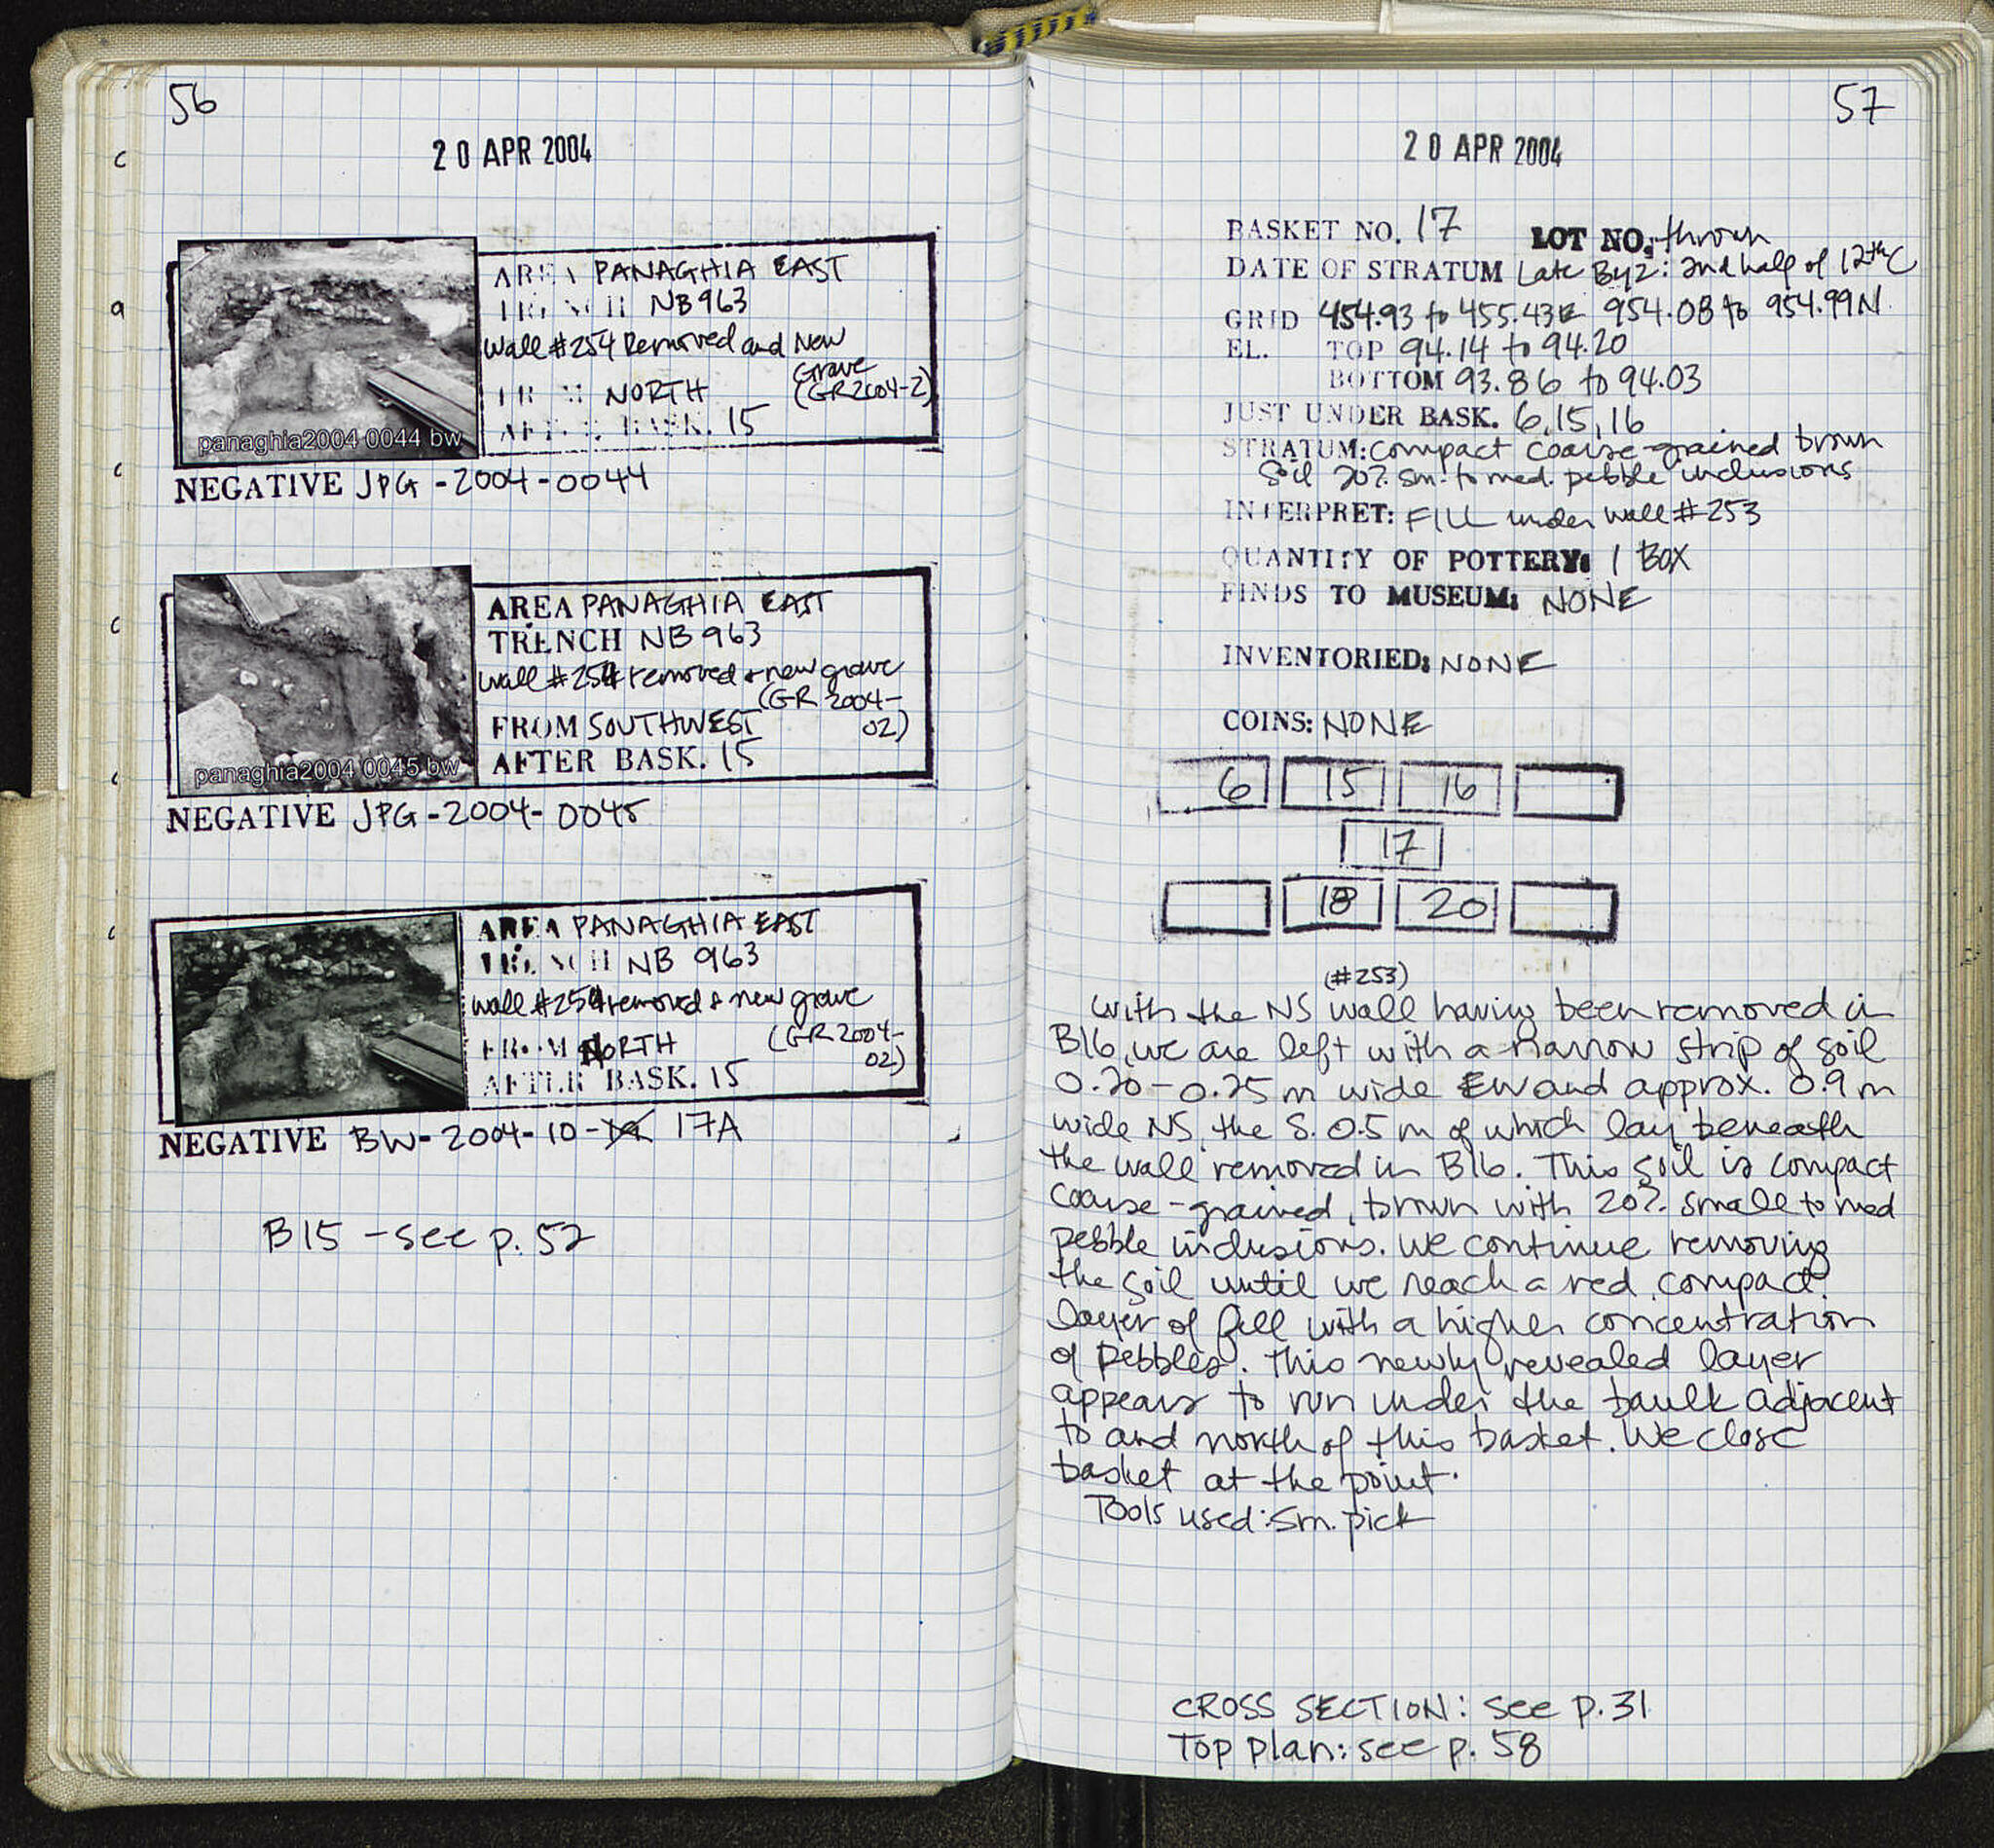 56
20 APR 2004
AREA PANAGHIA EAST
TRENCH NB 963
Wall #254 Removed and New
Grave
FROM NORTH (GR2004-2)
AFTER BASK. 15
panaghia2004 0044 bw
NEGATIVE JPG-2004-0044
AREA PANAGHIA EAST
TRENCH NB 963
wall #254 removed + new grave
(GR 2004-
FROM SOUTHWEST 02)
AFTER BASK. 15
panaghia2004 0045 bw
NEGATIVE JPG-2004-0045
AREA PANAGHIA EAST
TRENCH NB 963
wall #254 removed + new grave
FROM NORTH (GR2004-
02)
AFTER BASK. 15
NEGATIVE BW-2004-10- 17A
B15 - see p. 52
57
20 APR 2004
BASKET NO. 17 LOT NO. thrown
DATE OF STRATUM Late Byz: 2nd half of 12thC
GRID 454.93 to 455.43E 954.08 to 954.99N
EL. TOP 94.14 to 94.20
BOTTOM 93.86 to 94.03
JUST UNDER BASK. 6,15,16
STRATUM: compact coarse-grained brown
soil 20% sm. to med. pebble inclusions
INTERPRET: FILL under wall #253
QUANTITY OF POTTERY: 1 BOX
FINDS TO MUSEUM: NONE
INVENTORIED: NONE
COINS: NONE
6 15 16
17
18 20
(#253)
With the NS wall having been removed in
B16, we are left with a narrow strip of soil
0.20-0.25 m wide EW and approx. 0.9 m
wide NS, the S. 0.5 m of which lay beneath
the wall removed in B16. This soil is compact
coarse-grained, brown with 20% small to med
pebble inclusions. We continue removing
the soil until we reach a red, compact
layer of fill with a higher concentration
of pebbles. This newly revealed layer
appears to run under the baulk adjacent
to and north of this basket. We close
basket at the point.
Tools used: sm. pick
CROSS SECTION: see p. 31
Top plan: see p. 58